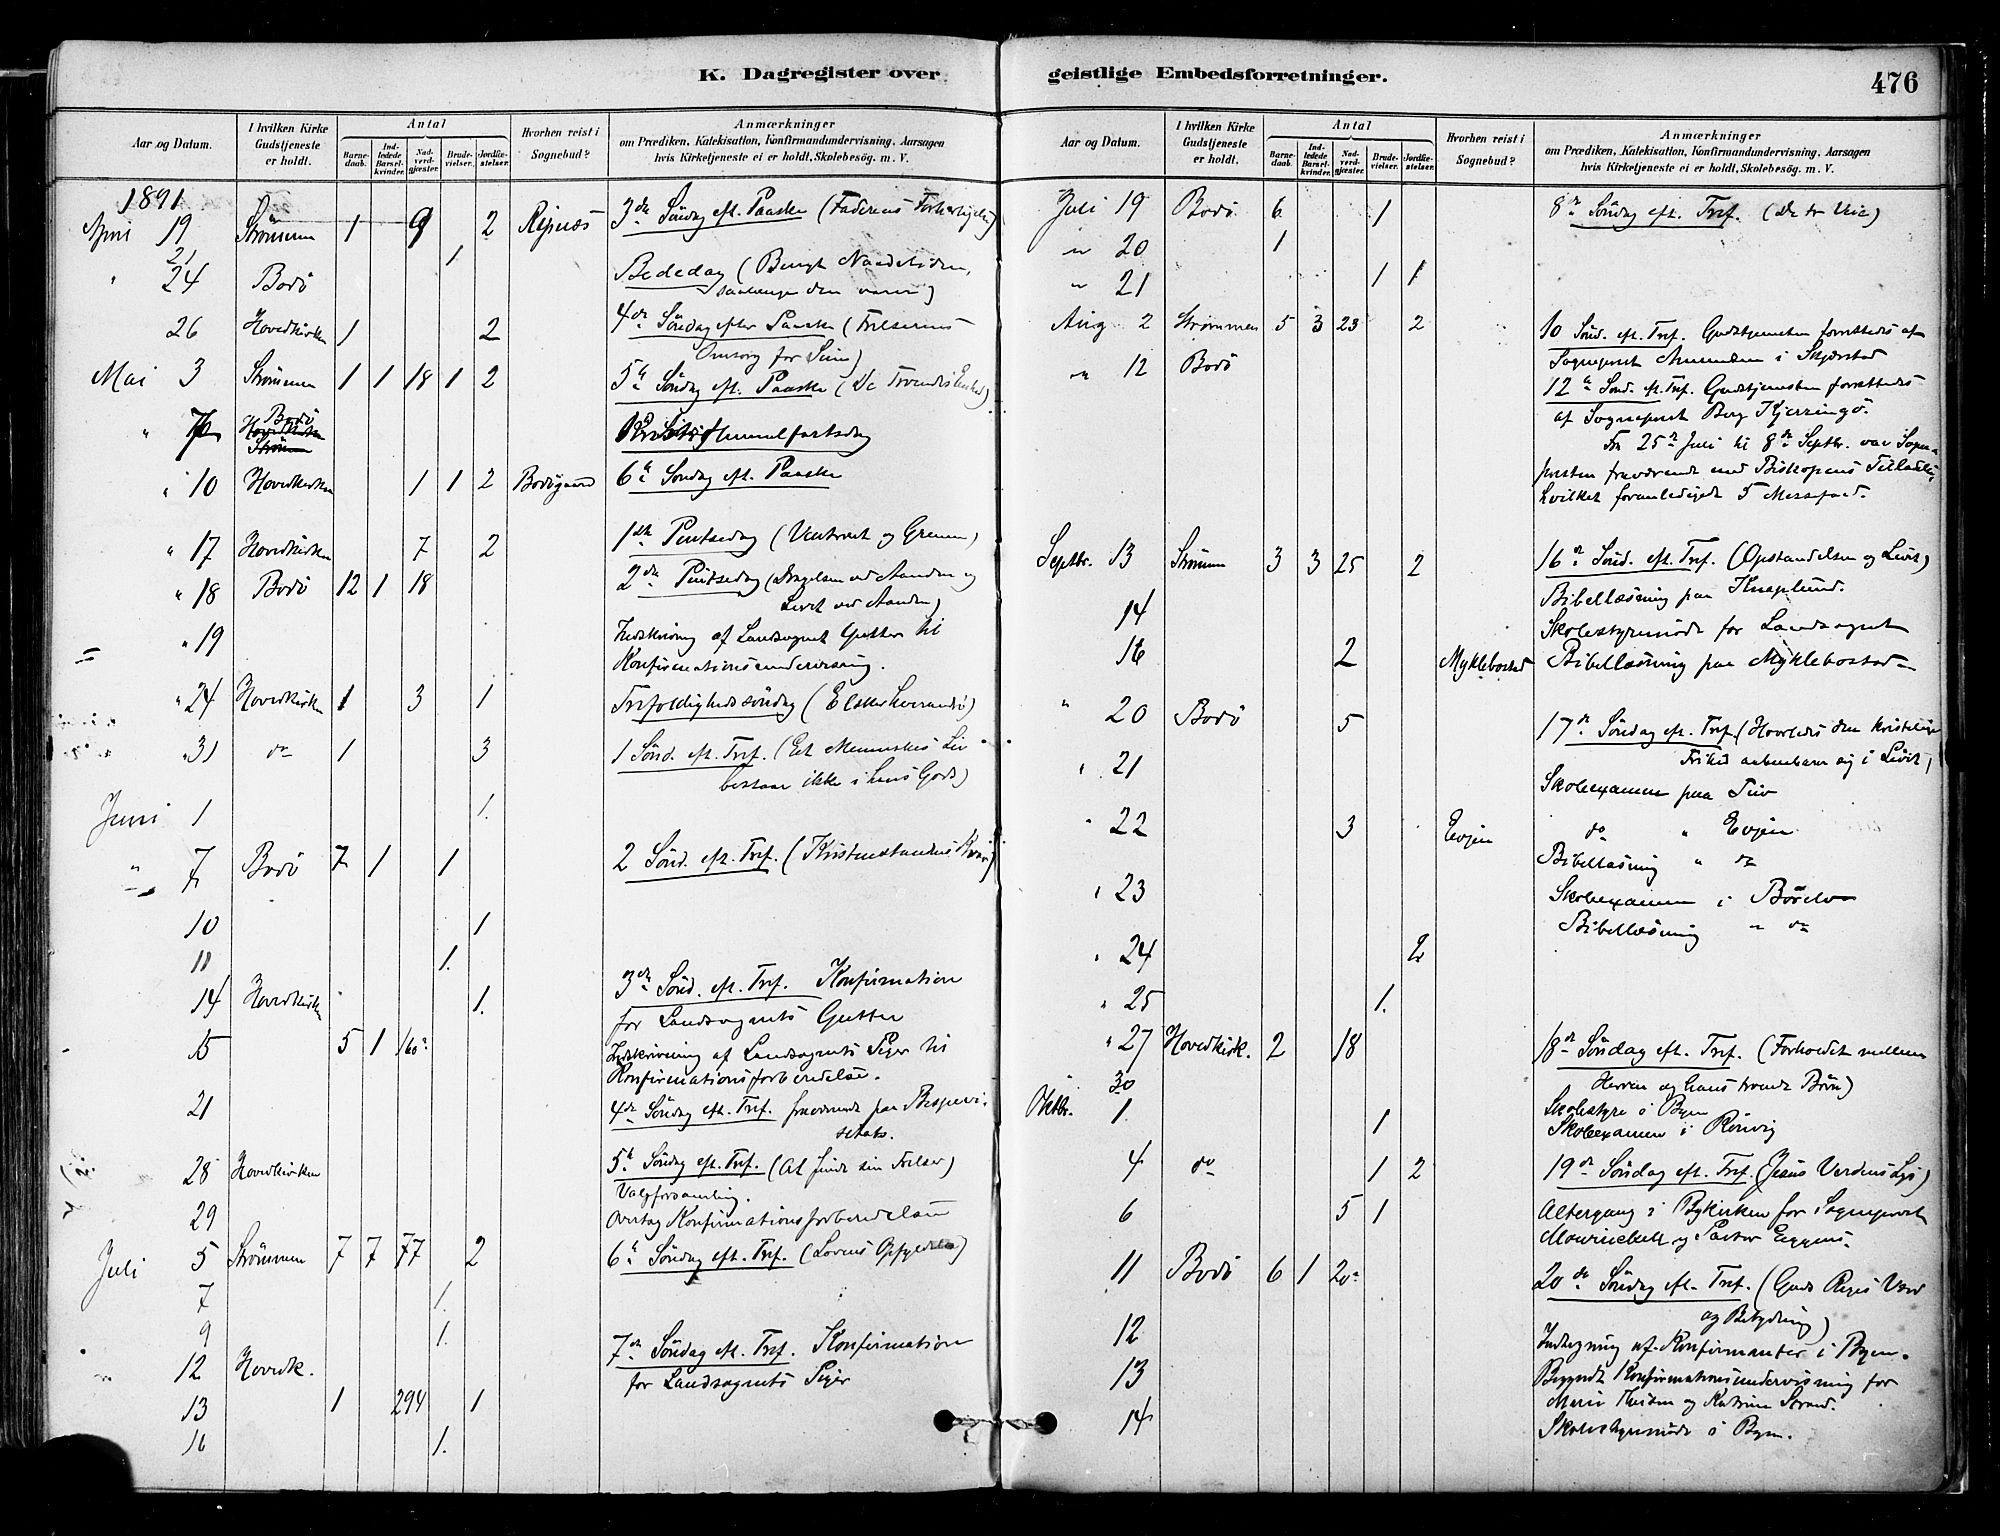 K. Dagregister over geistlige Embedsforretninger.
476
Aar og Datum.
I hvilken Kirke Gudstjeneste er holdt.
Antal
Barnedaab.
Indledede Barselkvinder.
Nadverdgjæster.
Brudevielser.
Jordfæstelser.
Hvorhen reist i Sognebud?
Anmærkninger
om Prædiken, Katekisation, Konfirmandundervisning, Aarsagen
hvis Kirketjeneste ei er holdt, Skolebesøg. m. V.
1891
April 19 Strømmen 1 9 2 3die Søndag eft. Paaske (Faderens
21 1
" 24 Bodø Bededag (Benyt Naadetiden,
saalænge den varer)
26 Hovedkirken 1 2 4de Søndag efter Paaske (Frelserens
Omsorg for Sine)
Mai 3 Strømmen 1 1 18 1 2 5te Søndag eft. Paaske (De Troendes Enhed)
" 7 Bodø Kristi Himmelfartsdag
" 10 Hovedkirken 1 1 2 Bodøgaard 6te Søndag eft. Paaske
" 17 Hovedkirken 7 2 1ste Pintsedag (Vintræet og Grenene)
" 18 Bodø 12 1 18 2den Pintsedag ( ved Aanden og
Livet ved Aanden)
" 19 Indskrivning af Landsognets Gutter til
Konfirmationsundervisning.
" 24 Hovedkirken 1 3 1 Trefoldighedssøndag (Elsker hverandre)
" 31 do 1 3 1 Sønd. eft. Tref. (Et Menneskes Liv
bestaar ikke i hans Gods)
Juni 1 1.
" 7 Bodø 7 1 1 2 Sønd. eft. Tref. (Kristenstandens
10 1
11 1.
14 Hovedkirken 1. 3die Sønd. eft. Tref. Konfirmation
for Landsognets Gutter
15 5 1 160 Indskrivning af Landsognets Piger til
Konfirmationsforberedelse.
21 4de Søndag eft. Tref. fraværende paa Bispevi-
sitats.
28 Hovedkirken 5te Søndag eft. Tref. (At finde sin Frelser)
Valgforsamling.
29 Overtog Konfirmationsforberedelsen
Juli 5 Strømmen 7 7 77 2 6te Søndag eft. Tref. (Lovens Opfyldelse)
7 1.
9 1.
12 Hovedk. 7de Søndag eft. Tref. Konfirmation
for Landsognets Piger
13 1 294 1
16 1.
Aar og Datum.
I hvilken Kirke Gudstjeneste er holdt.
Antal
Barnedaab.
Indledede Barselkvinder.
Nadverdgjæster.
Brudevielser.
Jordfæstelser.
Hvorhen reist i Sognebud?
Anmærkninger
om Prædiken, Katekisation, Konfirmandundervisning, Aarsagen
hvis Kirketjeneste ei er holdt, Skolebesøg. m. V.
Juli 19 Bodø 6 1 8de Søndag eft. Tref. (De to Veie)
" 20 1
" 21 1 1
Aug 2 Strømmen 5 3 23 2 10 Sønd. eft. Tref. Gudstjenesten forrettedes af
Sognepræst i Skjerstad
" 12 Bodø 12te Sønd. eft. Tref. Gudstjenesten forrettedes
af Sognepræst Berg Kjerringø.
Fra 25de Juli til 8de Septbr. var Sogne-
præsten fraværende med Biskopens Tilladelse,
hvilket foranledigede 5 Messefald.
Septbr. 13 Strømmen 3 3 25 2 16de Sønd. eft. Tref. (Opstandelsen og Livet)
Bibellæsning paa Knaplund.
14 Skolestyremøde for Landsognet
16 2 Myklebostad Bibellæsning paa Myklebostad
" 20 Bodø 5 17de Søndag eft. Tref. (Hvorledes den kristelige
Frihed aabenbarer sig i Livet)
" 21 Skoleexamen paa
" 22 3 Evjen do " Evjen
Bibellæsning " do
" 23 Skoleexamen i
Bibellæsning " do
" 24 2
" 25 1.
" 27 Hovedkirk. 2 18 18de Søndag eft. Tref. (Forholdet mellem
Herren og hans troende Børn)
30 Skolestyre i Byen
Oktbr. 1 1 Skoleexamen i Rønvig
4 do 1 2 19de Søndag eft. Tref. (Jesus Verdens Lys)
6 5 1 Altergang i Bykirken for Sognepræst
og Pastor
11 Bodø 6 1 20 20de Søndag eft. Tref. (Guds Riges Værd
og Betydning)
12 Indtegning af Konfirmanter i Byen.
13 Begyndt Konfirmationsundervisning for
og Katrine Strand.
14 Skolestyremøde i Byen.